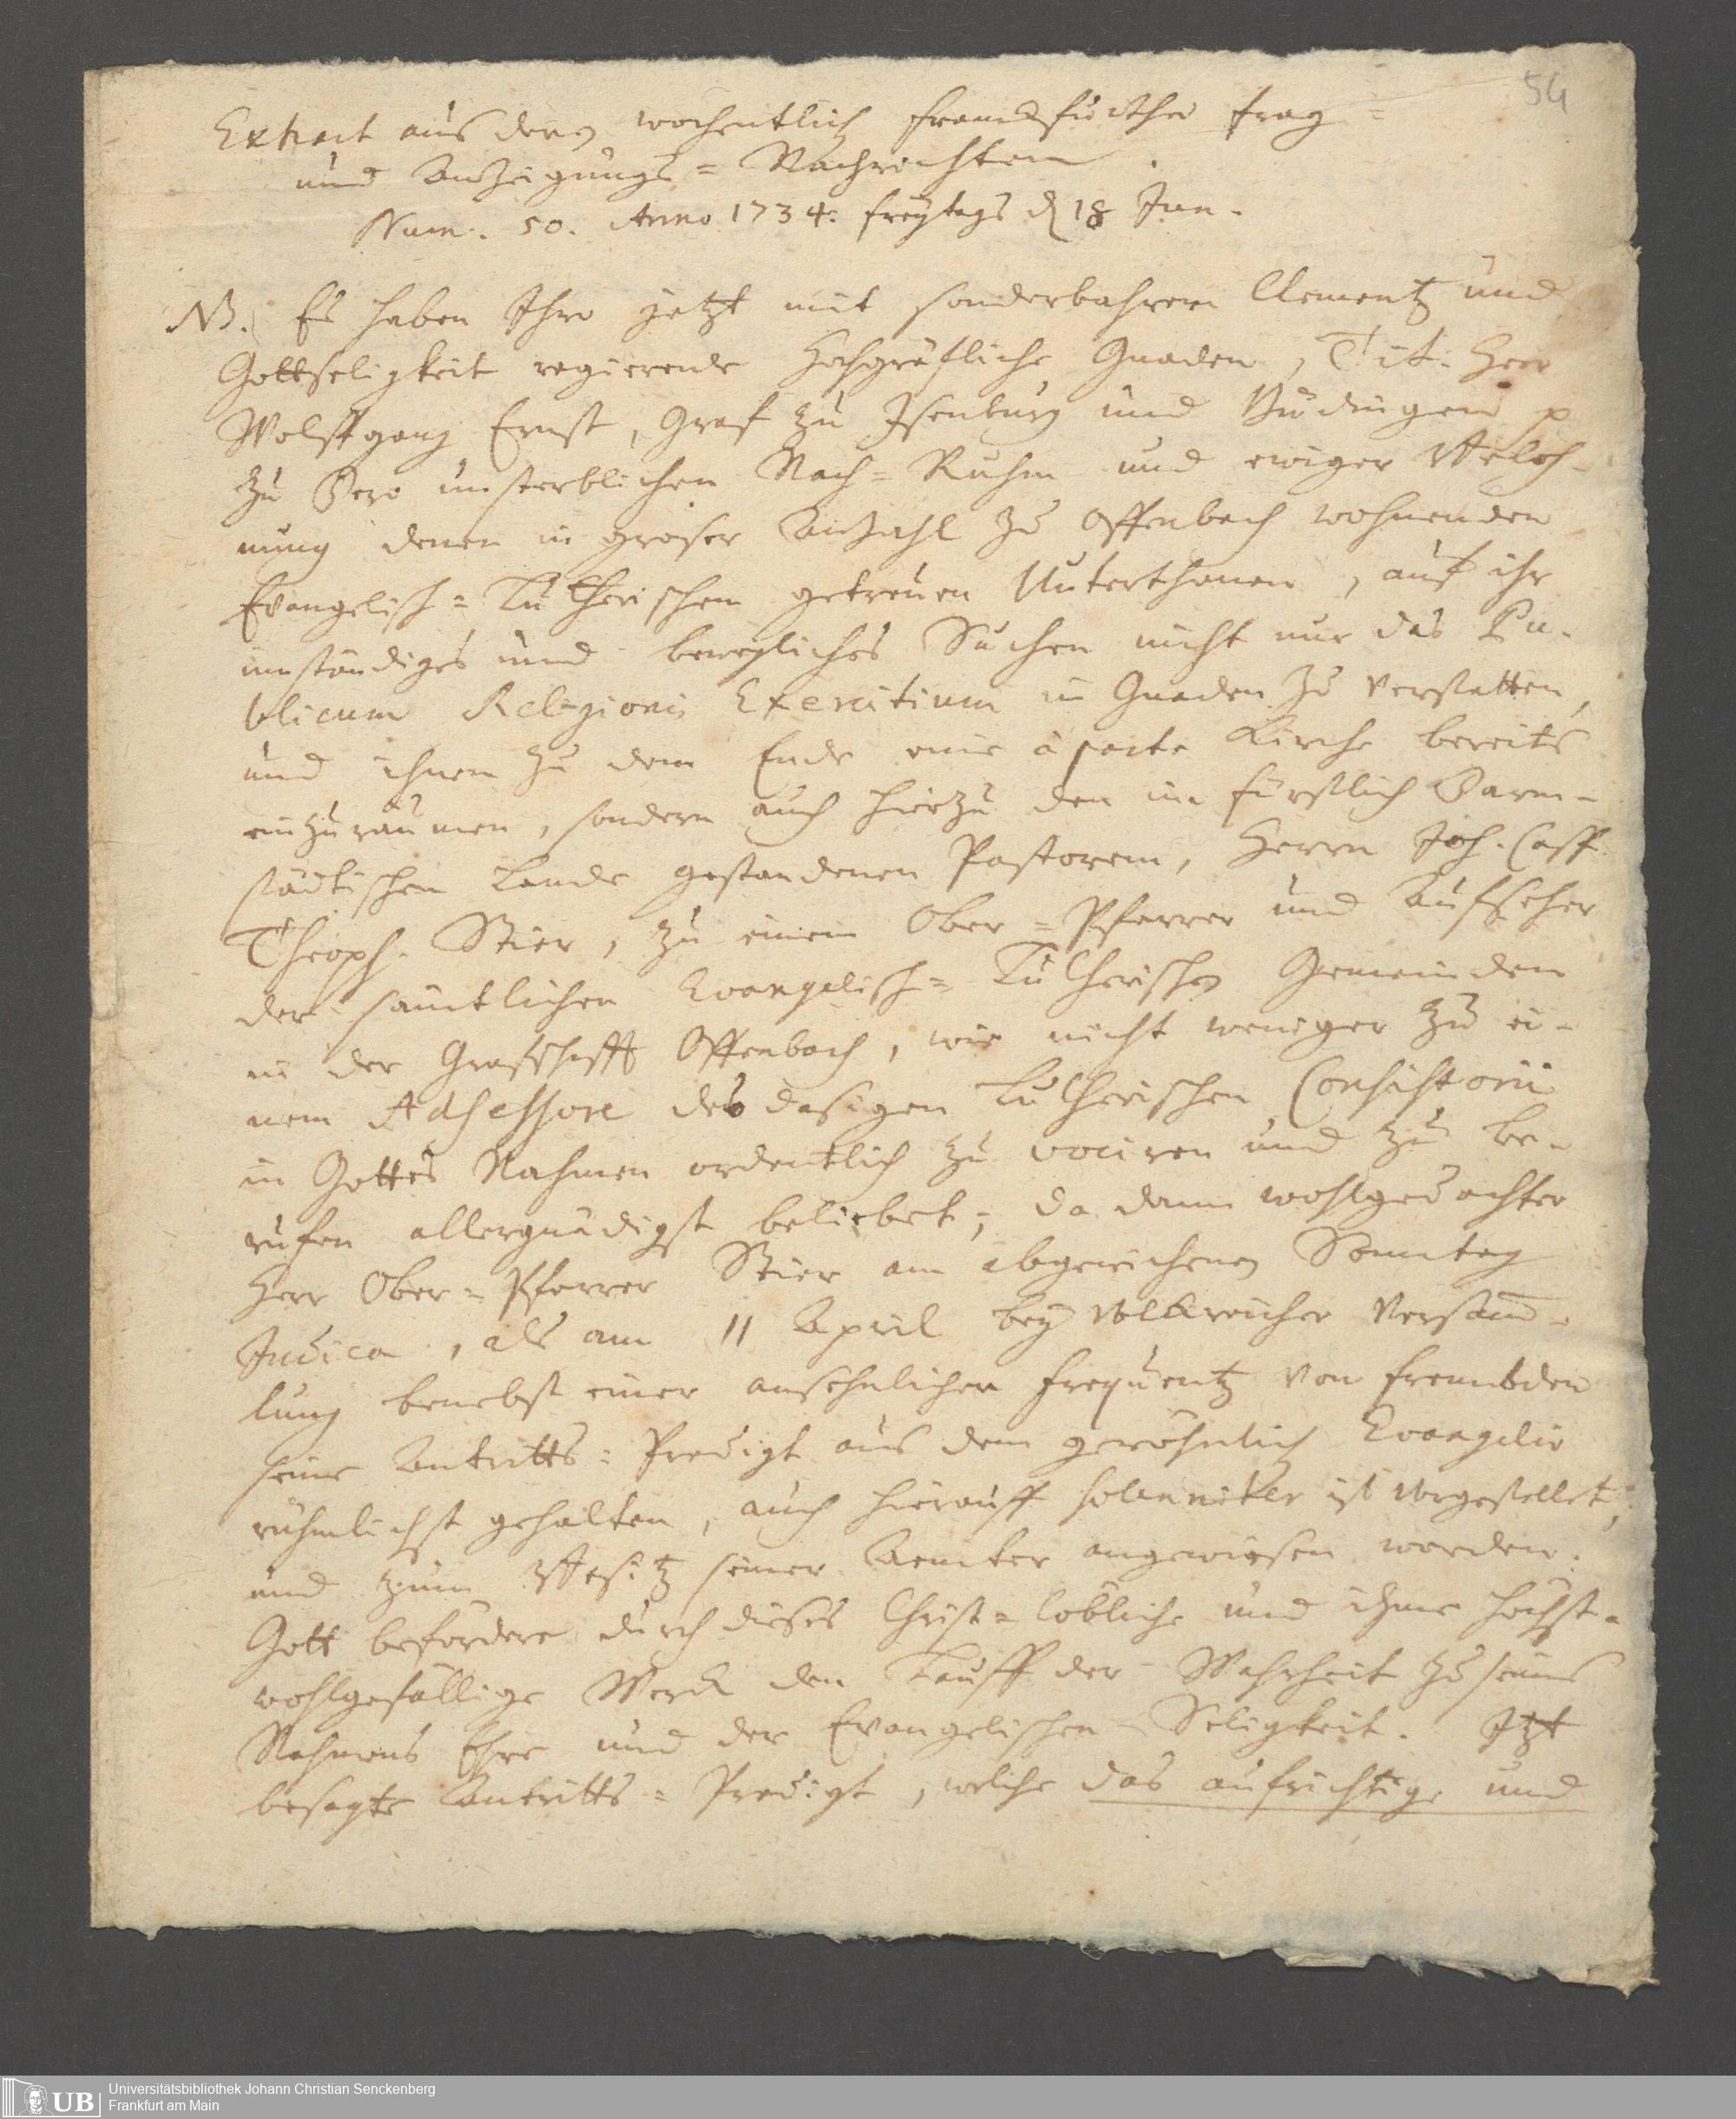 54
Extract aus denen wochentlich Franckfurther Frag-
und Anzeigungs-Nachrichten.
Num. 50. Anno 1734. Freytags d 18 Jun.
NB. Es haben Ihro jetzt mit sonderbahrer Clementz und
Gottseligkeit regierende Hochgräfliche Gnaden, Tit. Herr
Wolffgang Ernst, Graf zu Isenburg und Büdingen p
zu Dero unsterblichen Nach-Ruhm und ewiger Beloh-
nung denen in groser Anzahl zu Offenbach wohnenden
Evangelisch-Lutherischen getreuen Unterthanen, auf ihr
inständiges und bewegliches Suchen nicht nur das Pu-
blicum Religionis Exercitium in Gnaden zu verstatten,
und ihnen zu dem Ende eine à parte Kirche bereits
einzuräumen, sondern auch hierzu den im Fürstlich Darm-
städtischen Lande gestandenen Pastorem, Herrn Joh. Casp.
Theoph. Stier, zu einem Ober-Pfarrer und Aufseher
der sämtlichen Evangelisch-Lutherischen Gemeinden
in der Graffschafft Offenbach, wie nicht weniger zu ei-
nem Adsessore des dasigen Lutherischen Consistorii
in Gottes Nahmen ordentlich zu vociren und zu be-
rufen allergnädigst beliebet; da dann wohlgedachter
Herr Ober-Pfarrer Stier am abgewichenen Sonntag
Judica, als am 11 April bey Volckreicher Versamm-
lung benebst einer ansehnlichen Frequentz von Frembden
seine Antritts-Predigt aus dem gewöhnlich Evangelio
rühmlichst gehalten, auch hierauff solenniter ist vorgestellet,
und zum Besitz seiner Aemter angewiesen worden.
Gott befördere durch dieses Christ-löbliche und ihme höchst-
wohlgefällige Werck den Lauff der Wahrheit zu seines
Nahmens Ehre und der Evangelischen Seligkeit. Jtzt
besagte Antritts-Predigt, welche das aufrichtige und
UB
Universitätsbibliothek Johann Christian Senckenberg
Frankfurt am Main